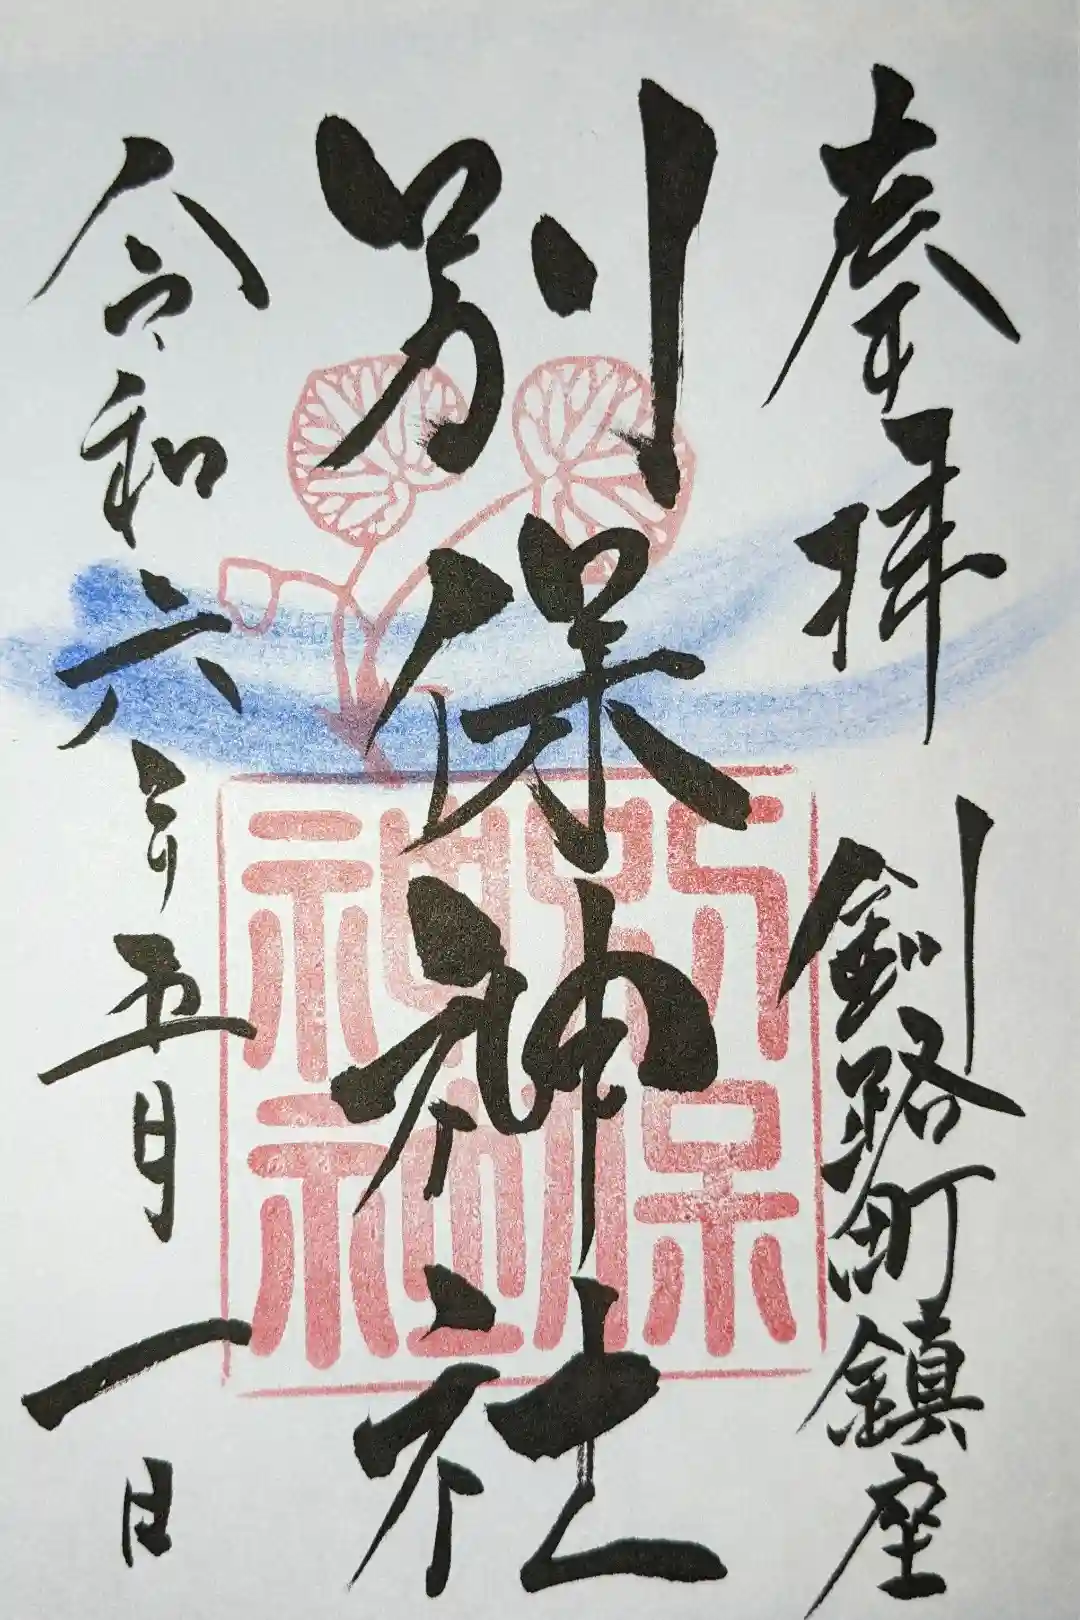 奉拝
釧路町鎮座
別保神社
別保
神社
令和六年五月一日